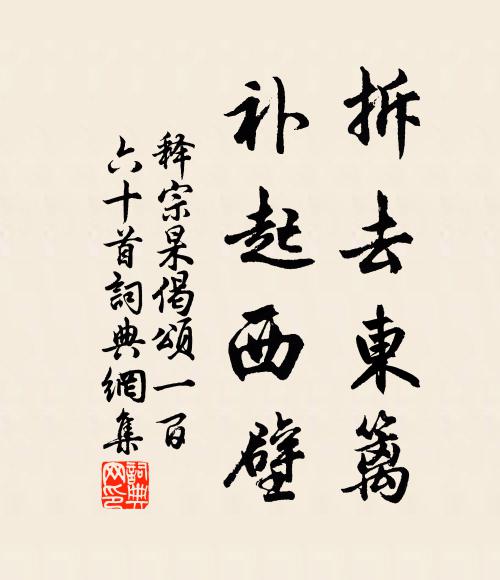 拆去東籬
补起西壁
释宗杲偈頌一百
六十首詞典網集
詞典
网印